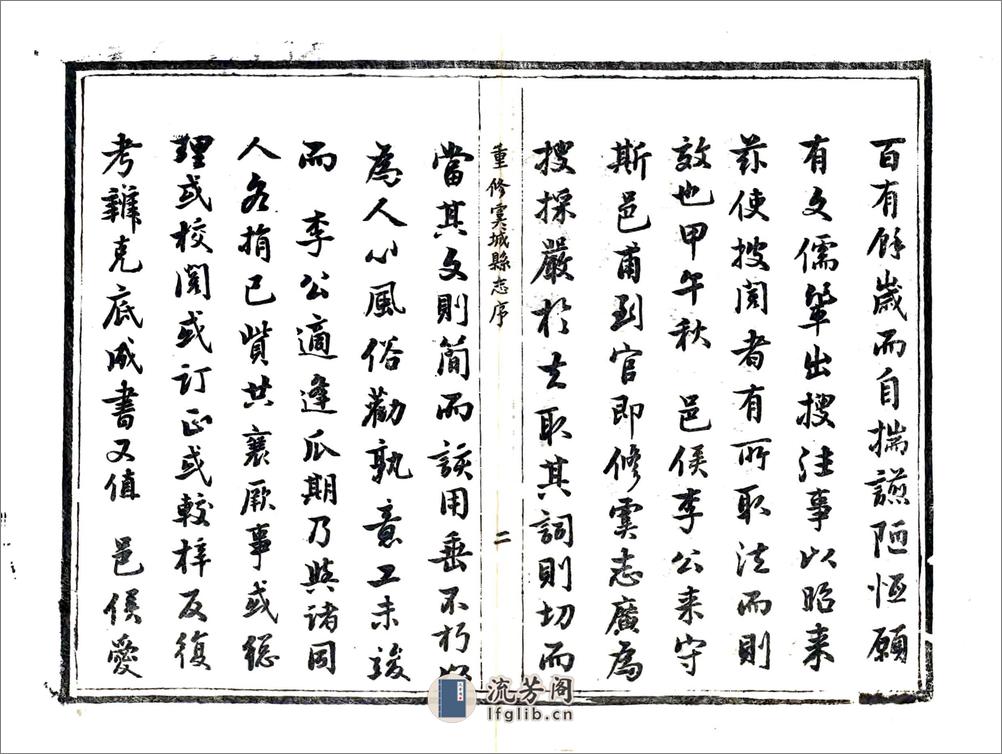 百有餘歲而自揣謭陋恒願
有文儒輩出搜往事以昭来
兹使披閱者有所取法而則
效也甲午秋 邑侯李公来守
斯邑甫到官即修虞志廣為
搜採嚴於去取其詞則切而
重修虞城縣志序
二
當其文則簡而該用垂不朽以
為人心風俗勸孰意工未竣
而 李公適逢瓜期乃與諸同
人各捐己貲共襄厥事或總
理或校閱或訂正或較梓反復
考雜克底成書又值 邑侯愛
流芳阁
lfglib.cn